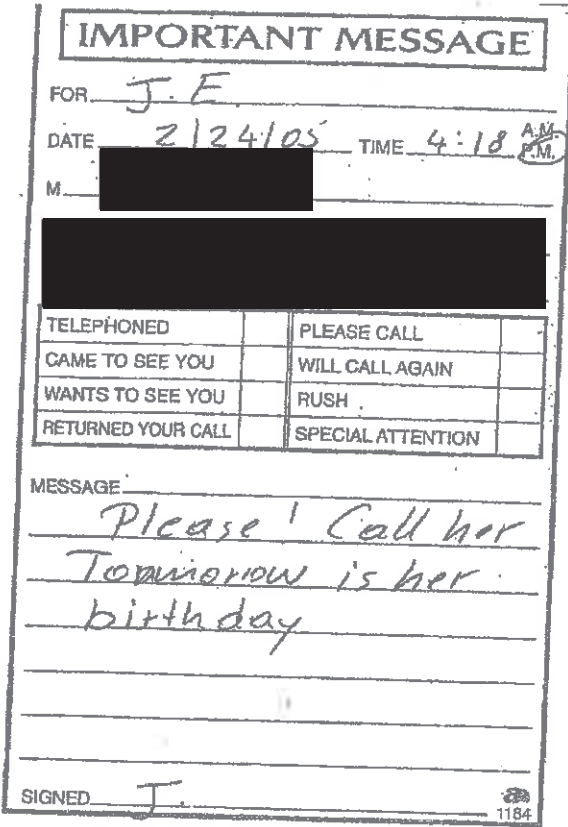 IMPORTANT MESSAGE
FOR J. E
DATE 2/24/05 TIME 4:18 A.M. P.M.
M
TELEPHONED PLEASE CALL
CAME TO SEE YOU WILL CALL AGAIN
WANTS TO SEE YOU RUSH
RETURNED YOUR CALL SPECIAL ATTENTION
MESSAGE
Please! Call her
Tommorow is her
birthday
SIGNED J.
1184